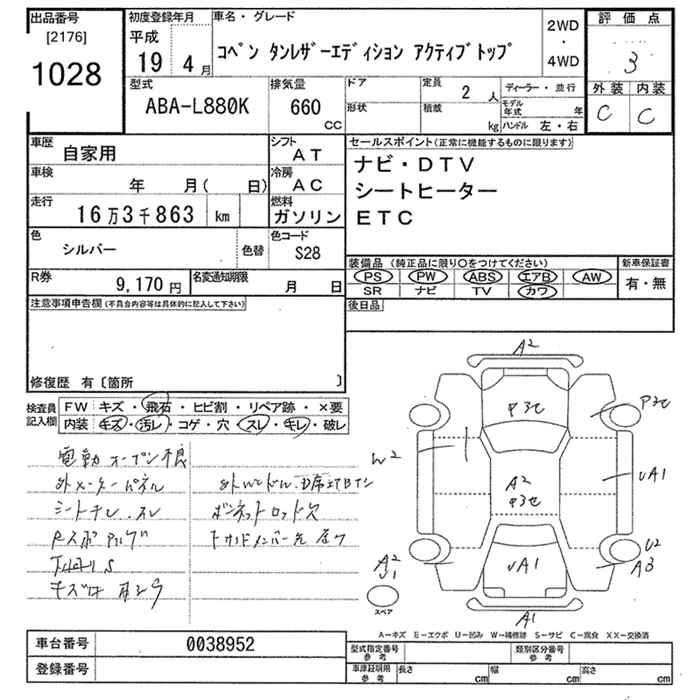 出品番号
[2176]
1028
初度登録年月
平成
19 4月
車名・グレード
コペン タンレザーエディション アクティブトップ
2WD
・
4WD
評価点
3
外装 内装
C C
型式
ABA-L880K
排気量
660
CC
ドア
形状
定員
2人
積載
kg
ディーラー・並行
モデル年式 年
ハンドル 左・右
車歴
自家用
シフト
AT
車検
年 月( 日)
冷房
AC
走行
16万3千863 km
燃料
ガソリン
色
シルバー
色替
色コード
S28
R券
9,170円
名変通知期限
月 日
セールスポイント(正常に機能するものに限ります)
ナビ・DTV
シートヒーター
ETC
装備品 (純正品に限り○をつけてください)
PS PW ABS エアB AW
SR ナビ TV カワ
新車保証書
有・無
後日品
注意事項申告欄(不具合内容等は具体的に記入して下さい)
修復歴 有〔箇所 〕
検査員
記入欄
FW キズ・飛石・ヒビ割・リペア跡・×要
内装 キズ・汚レ・コゲ・穴・スレ・キレ・破レ
電動オープン不良
シートキレ.スレ
A2
W2
A2
UA1
UA1
U2
A3
A2
A1
スペア
A-キズ E-エクボ U-凹み W-補修跡 S-サビ C-腐食 XX-交換済
車台番号
0038952
登録番号
型式指定番号
参考
類別区分番号
参考
車庫証明用
参考
長さ cm
幅 cm
高さ cm